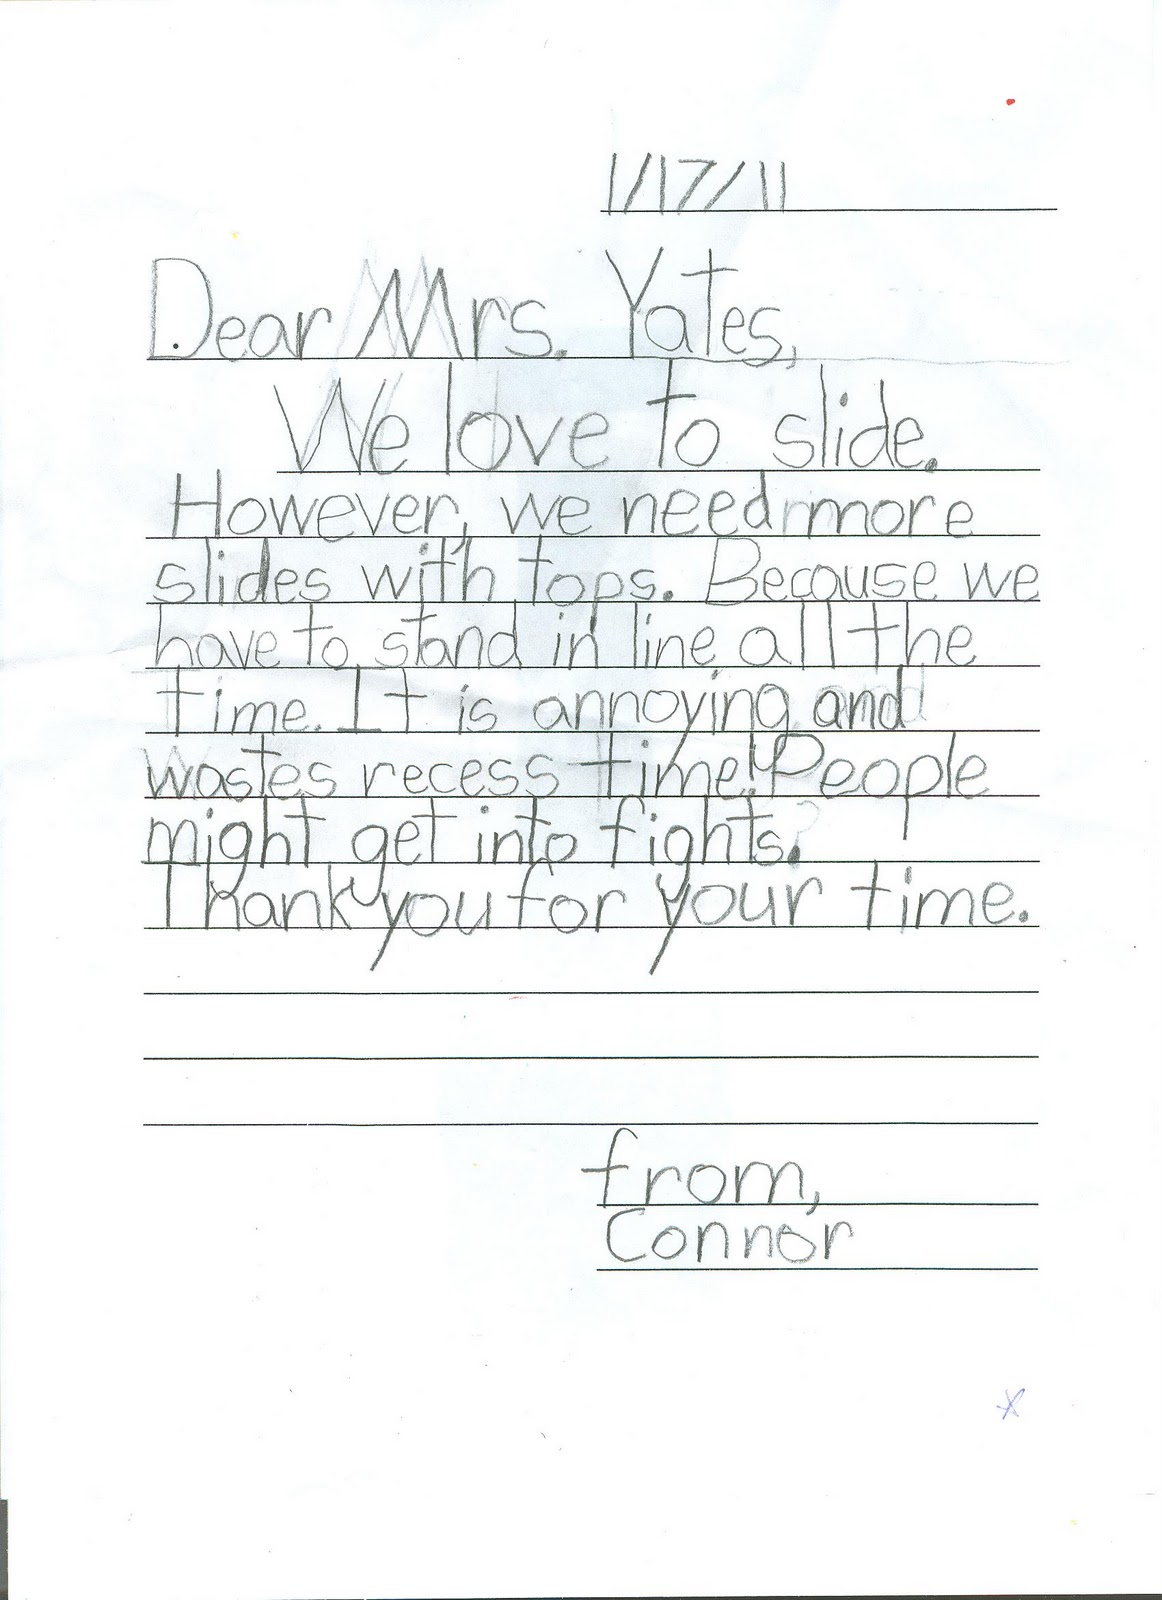 1/17/11
Dear Mrs. Yates,
We love to slide.
However, we need more
slides with tops. Because we
have to stand in line all the
time. It is annoying and
wastes recess time! People
might get into fights.
Thank you for your time.
from,
Connor